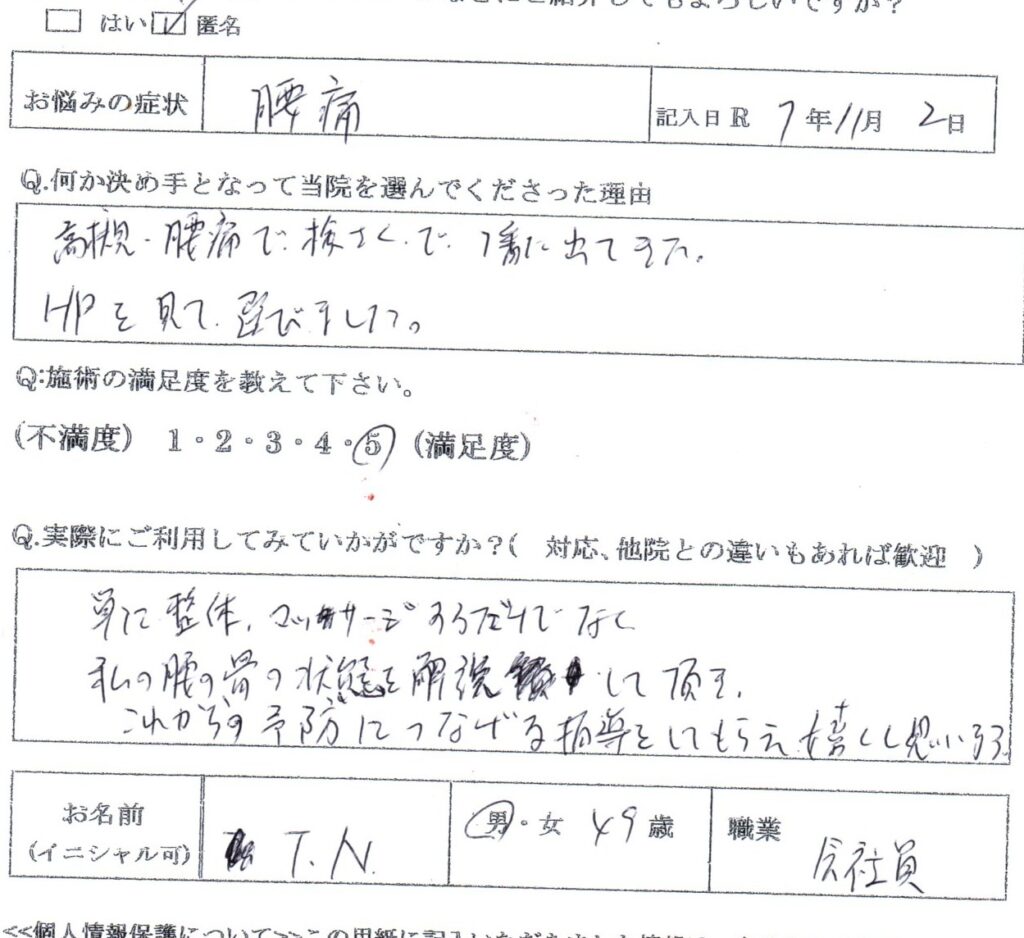 ご紹介してもよろしいですか?
□ はい ☑ 匿名
お悩みの症状 腰痛 記入日 R 7年11月2日
Q.何か決め手となって当院を選んでくださった理由
高槻・腰痛で、検さくで 1番に出てきた。
HPを見て、選びました。
Q:施術の満足度を教えて下さい。
(不満度) 1・2・3・4・5 (満足度)
Q.実際にご利用してみていかがですか?( 対応、他院との違いもあれば歓迎 )
単に整体、マッサージするだけでなく
私の腰の骨の状態を解説して頂き、
これからの予防につなげる指導をしてもらえ嬉しく思います。
お名前 (イニシャル可) T.N. 男・女 49歳 職業 会社員
<<個人情報保護について>>この用紙に記入いただきました情報